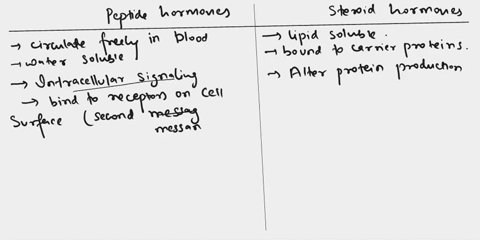 Peptide hormones
Steroid hormones
→ Circulate freely in blood
→ water soluble
→ Intracellular signaling
→ bind to receptors on cell
Surface (second messag
messan
→ lipid soluble.
→ bound to carrier proteins.
→ Alter protein production